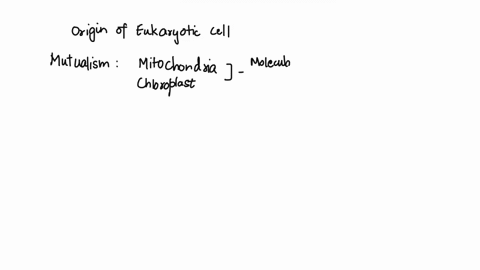 Origin of Eukaryotic cell
Mutualism : Mitochondria ] - Molecub
Chloroplast